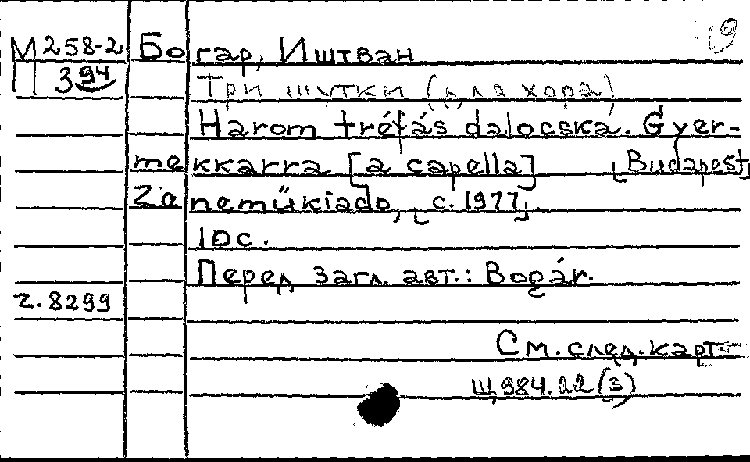 М 258-2 Богар, Иштван
П 394 Три шутки (для хора)
Három tréfás dalocska. Gyer-
mekkarra [a capella] [Budapest]
Zeneműkiado, [c. 1977].
10 с.
Перед загл. авт.: Bogár.
г. 8299
См. след. карт.
Щ984.22(3)